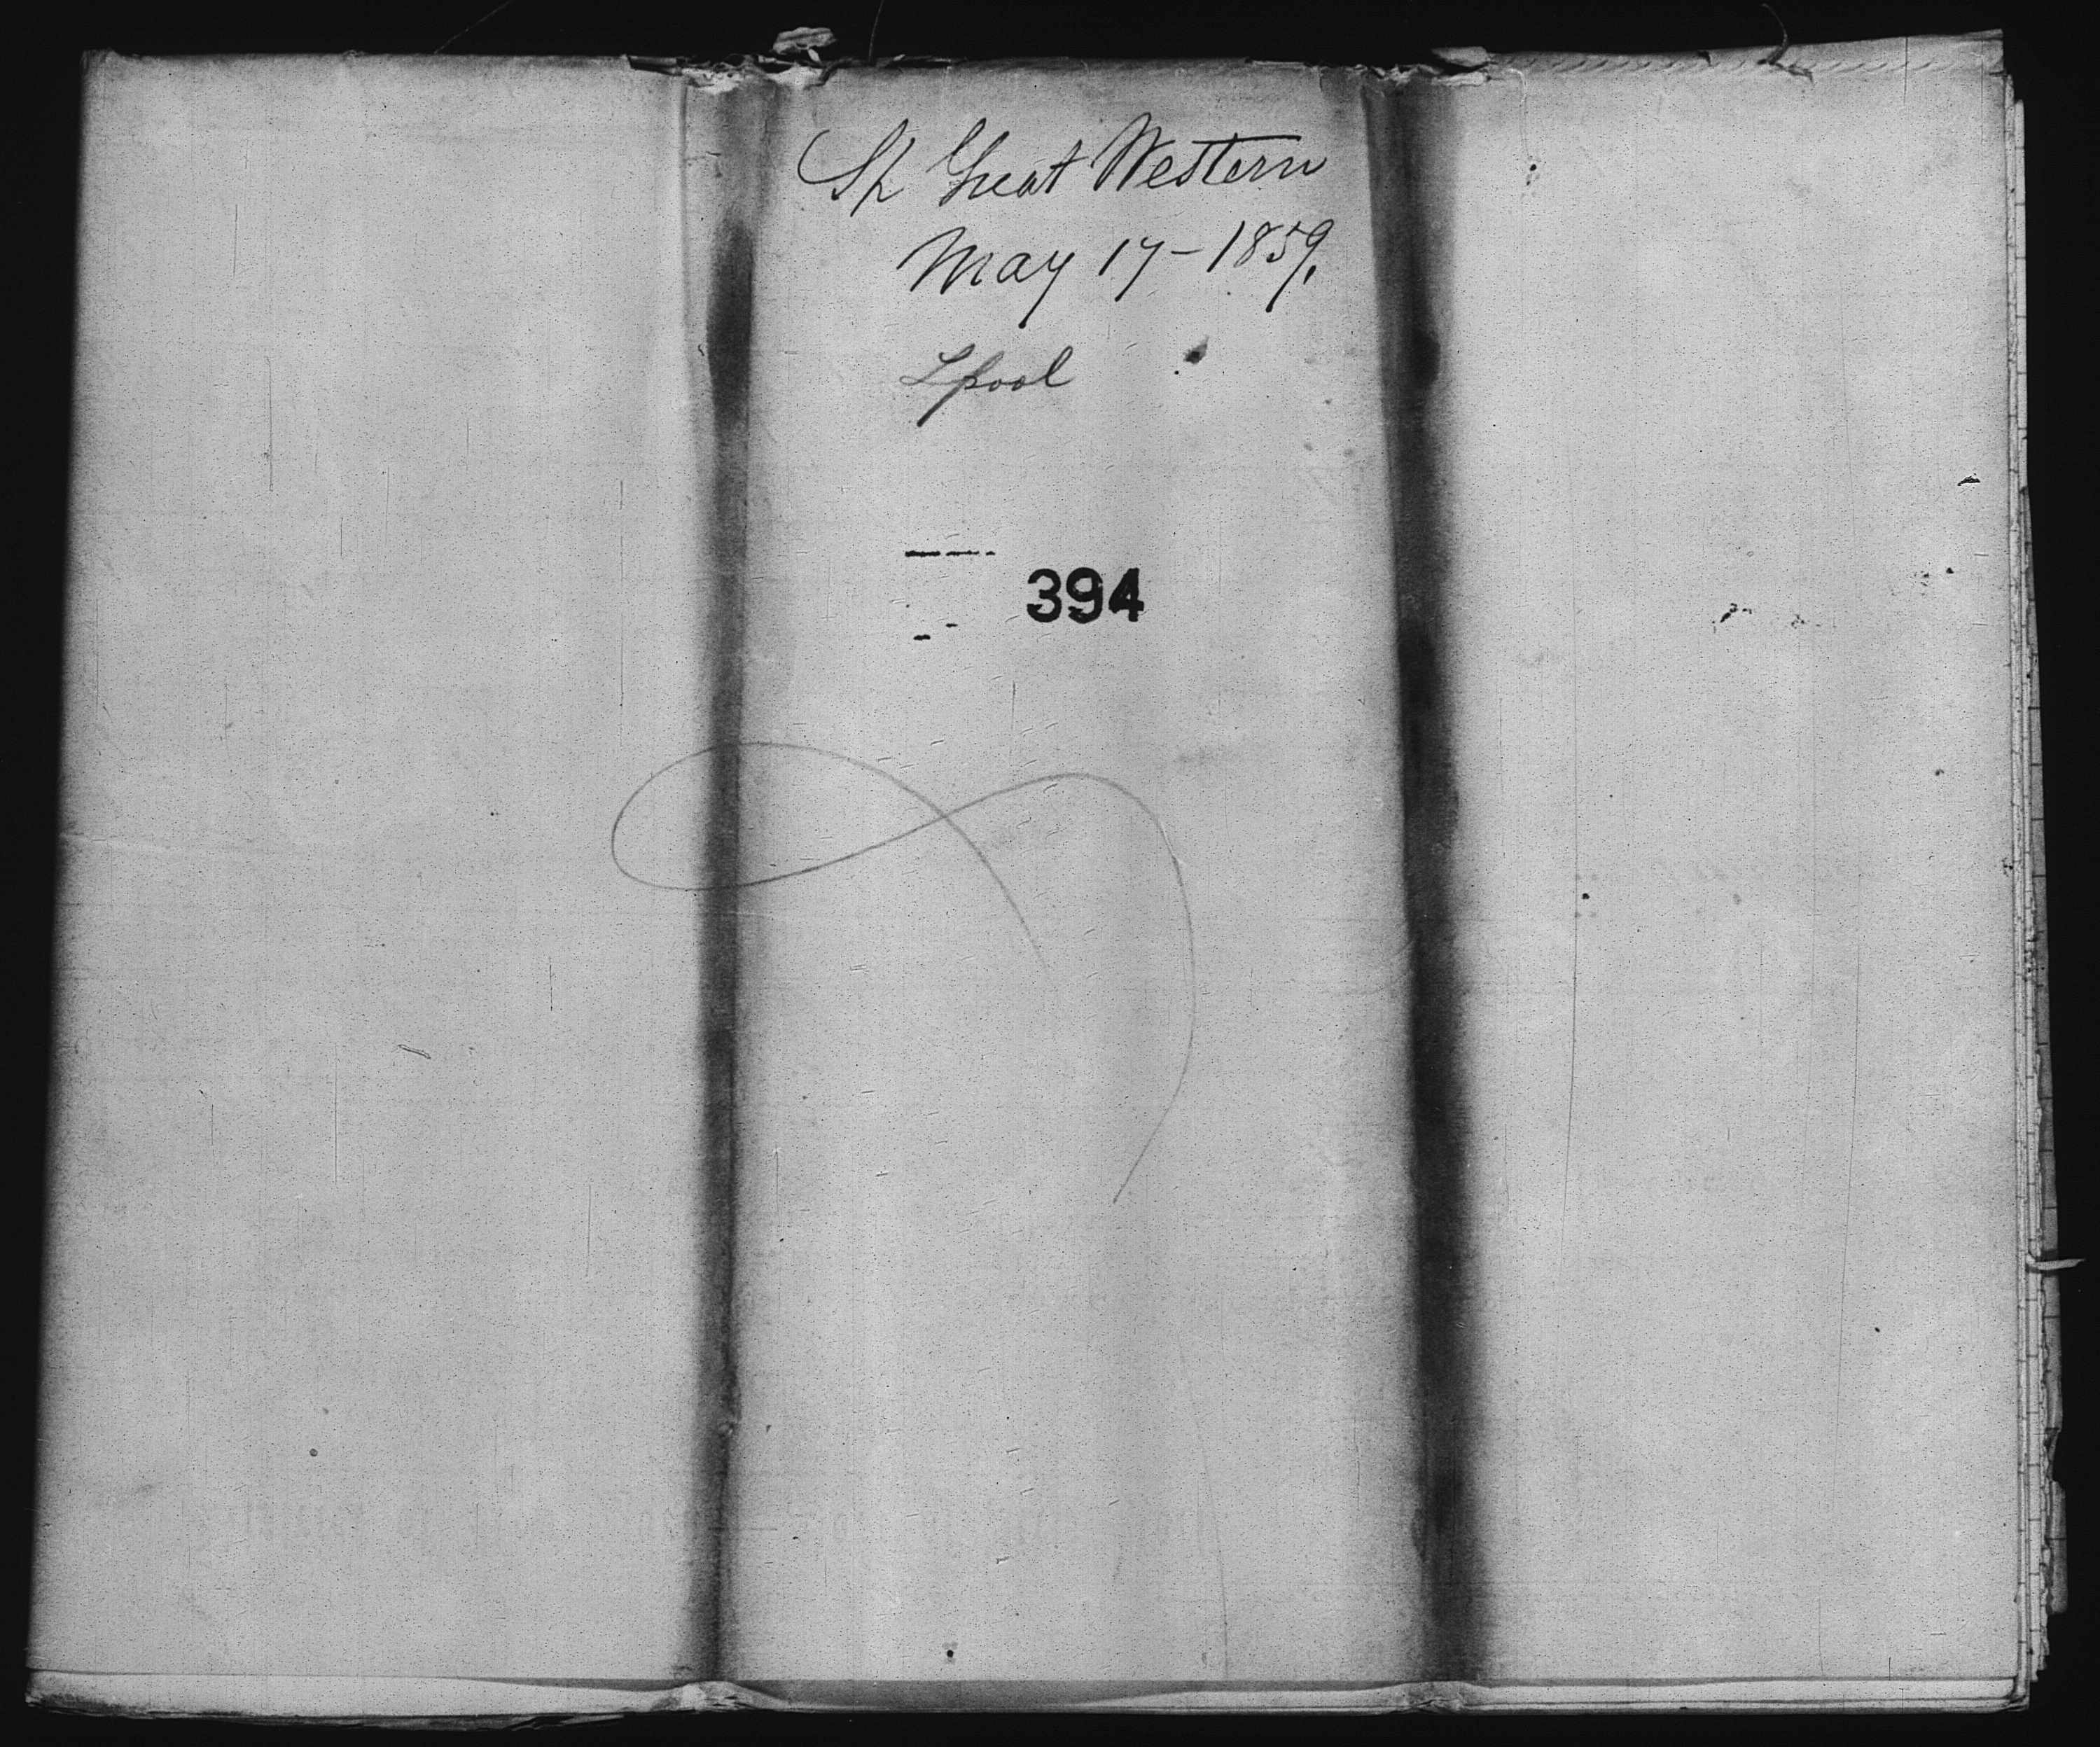 Sh Great Western
May 17-1859,
Lpool
394